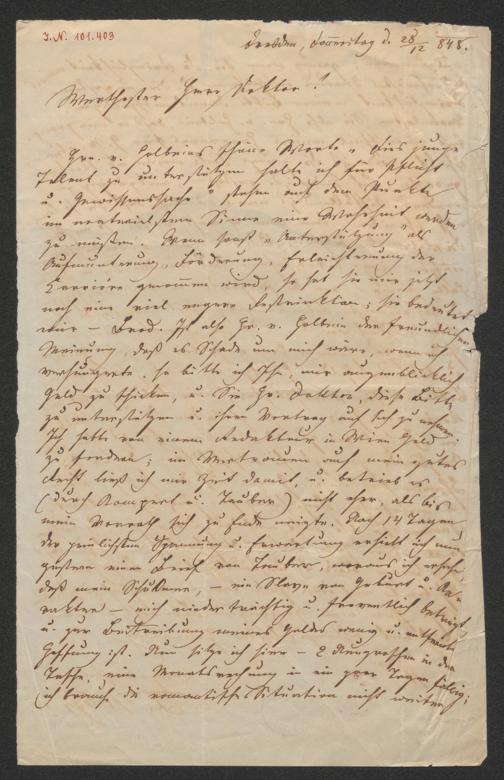 I. N. 101.403
Dresden, Donnerstag d. 28/12 848.
Werthester Herr Doktor!
Hrn. v. Holbeins schöne Worte „dies junge
Talent zu unterstützen halte ich für Pflicht
u. Gewissenssache" stehen auf dem Punkte
im Sinne eine Wahrheit werden
zu müssen. Wenn sonst „Unterstützung" als
Aufmunterung, Förderung, Erleichterung der
Karriére genomen wird, so hat sie mir jetzt
noch eine viel engere Restriktion; sie bedeutet
mir – Brod. Ist also Hr. v. Holbein der freundlichen
Meinung, daß es Schade um mich wäre, wenn ich
verhungerte, so bitte ich Ihn, mir augenblicklich
Geld zu schicken, u. Sie Hr. Doktor, diese Bitte
zu unterstützen u. ihren Vortrag auf sich zu nehmen.
Ich hatte von einem Redakteur in Wien Geld
zu fordern; im Vertrauen auf mein gutes
Recht ließ ich mir Zeit damit, u. betrieb es
(durch Kompert u. Tauber) nicht eher, als bis
mein Vorrath sich zu Ende neigte. Nach 14 Tagen
der peinlichsten Spannung u. Erwartung erhielt ich nun
gestern einen Brief von Tauber, woraus ich ersehe
daß mein Schuldner, – ein Slave von Geburt u. Ka-
rakter – mich niederträchtig u. betrügt
u. zur Beitreibung meines Geldes wenig u.
Hoffnung ist. Nun sitze ich hier – 2 Neugroschen in der
Tasche, eine Monatsrechnung in ein paar Tagen fällig;
ich brauche die romantische Situation nicht weiter